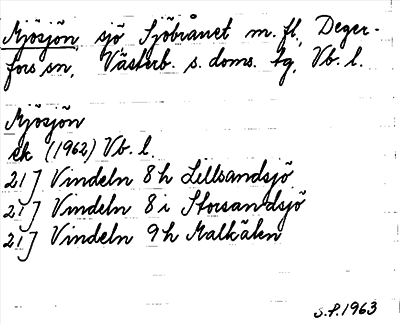 Mjösjön sjö Sjöbrånet m. fl., Deger-
fors sn, Västerb. s. doms. tg, Vb. l.
Mjösjön
ek (1962) Vb. l.
21J Vindeln 8h Lillsandsjö
21J Vindeln 8i Storsandsjö
21J Vindeln 9h Malkälen
S.P. 1963